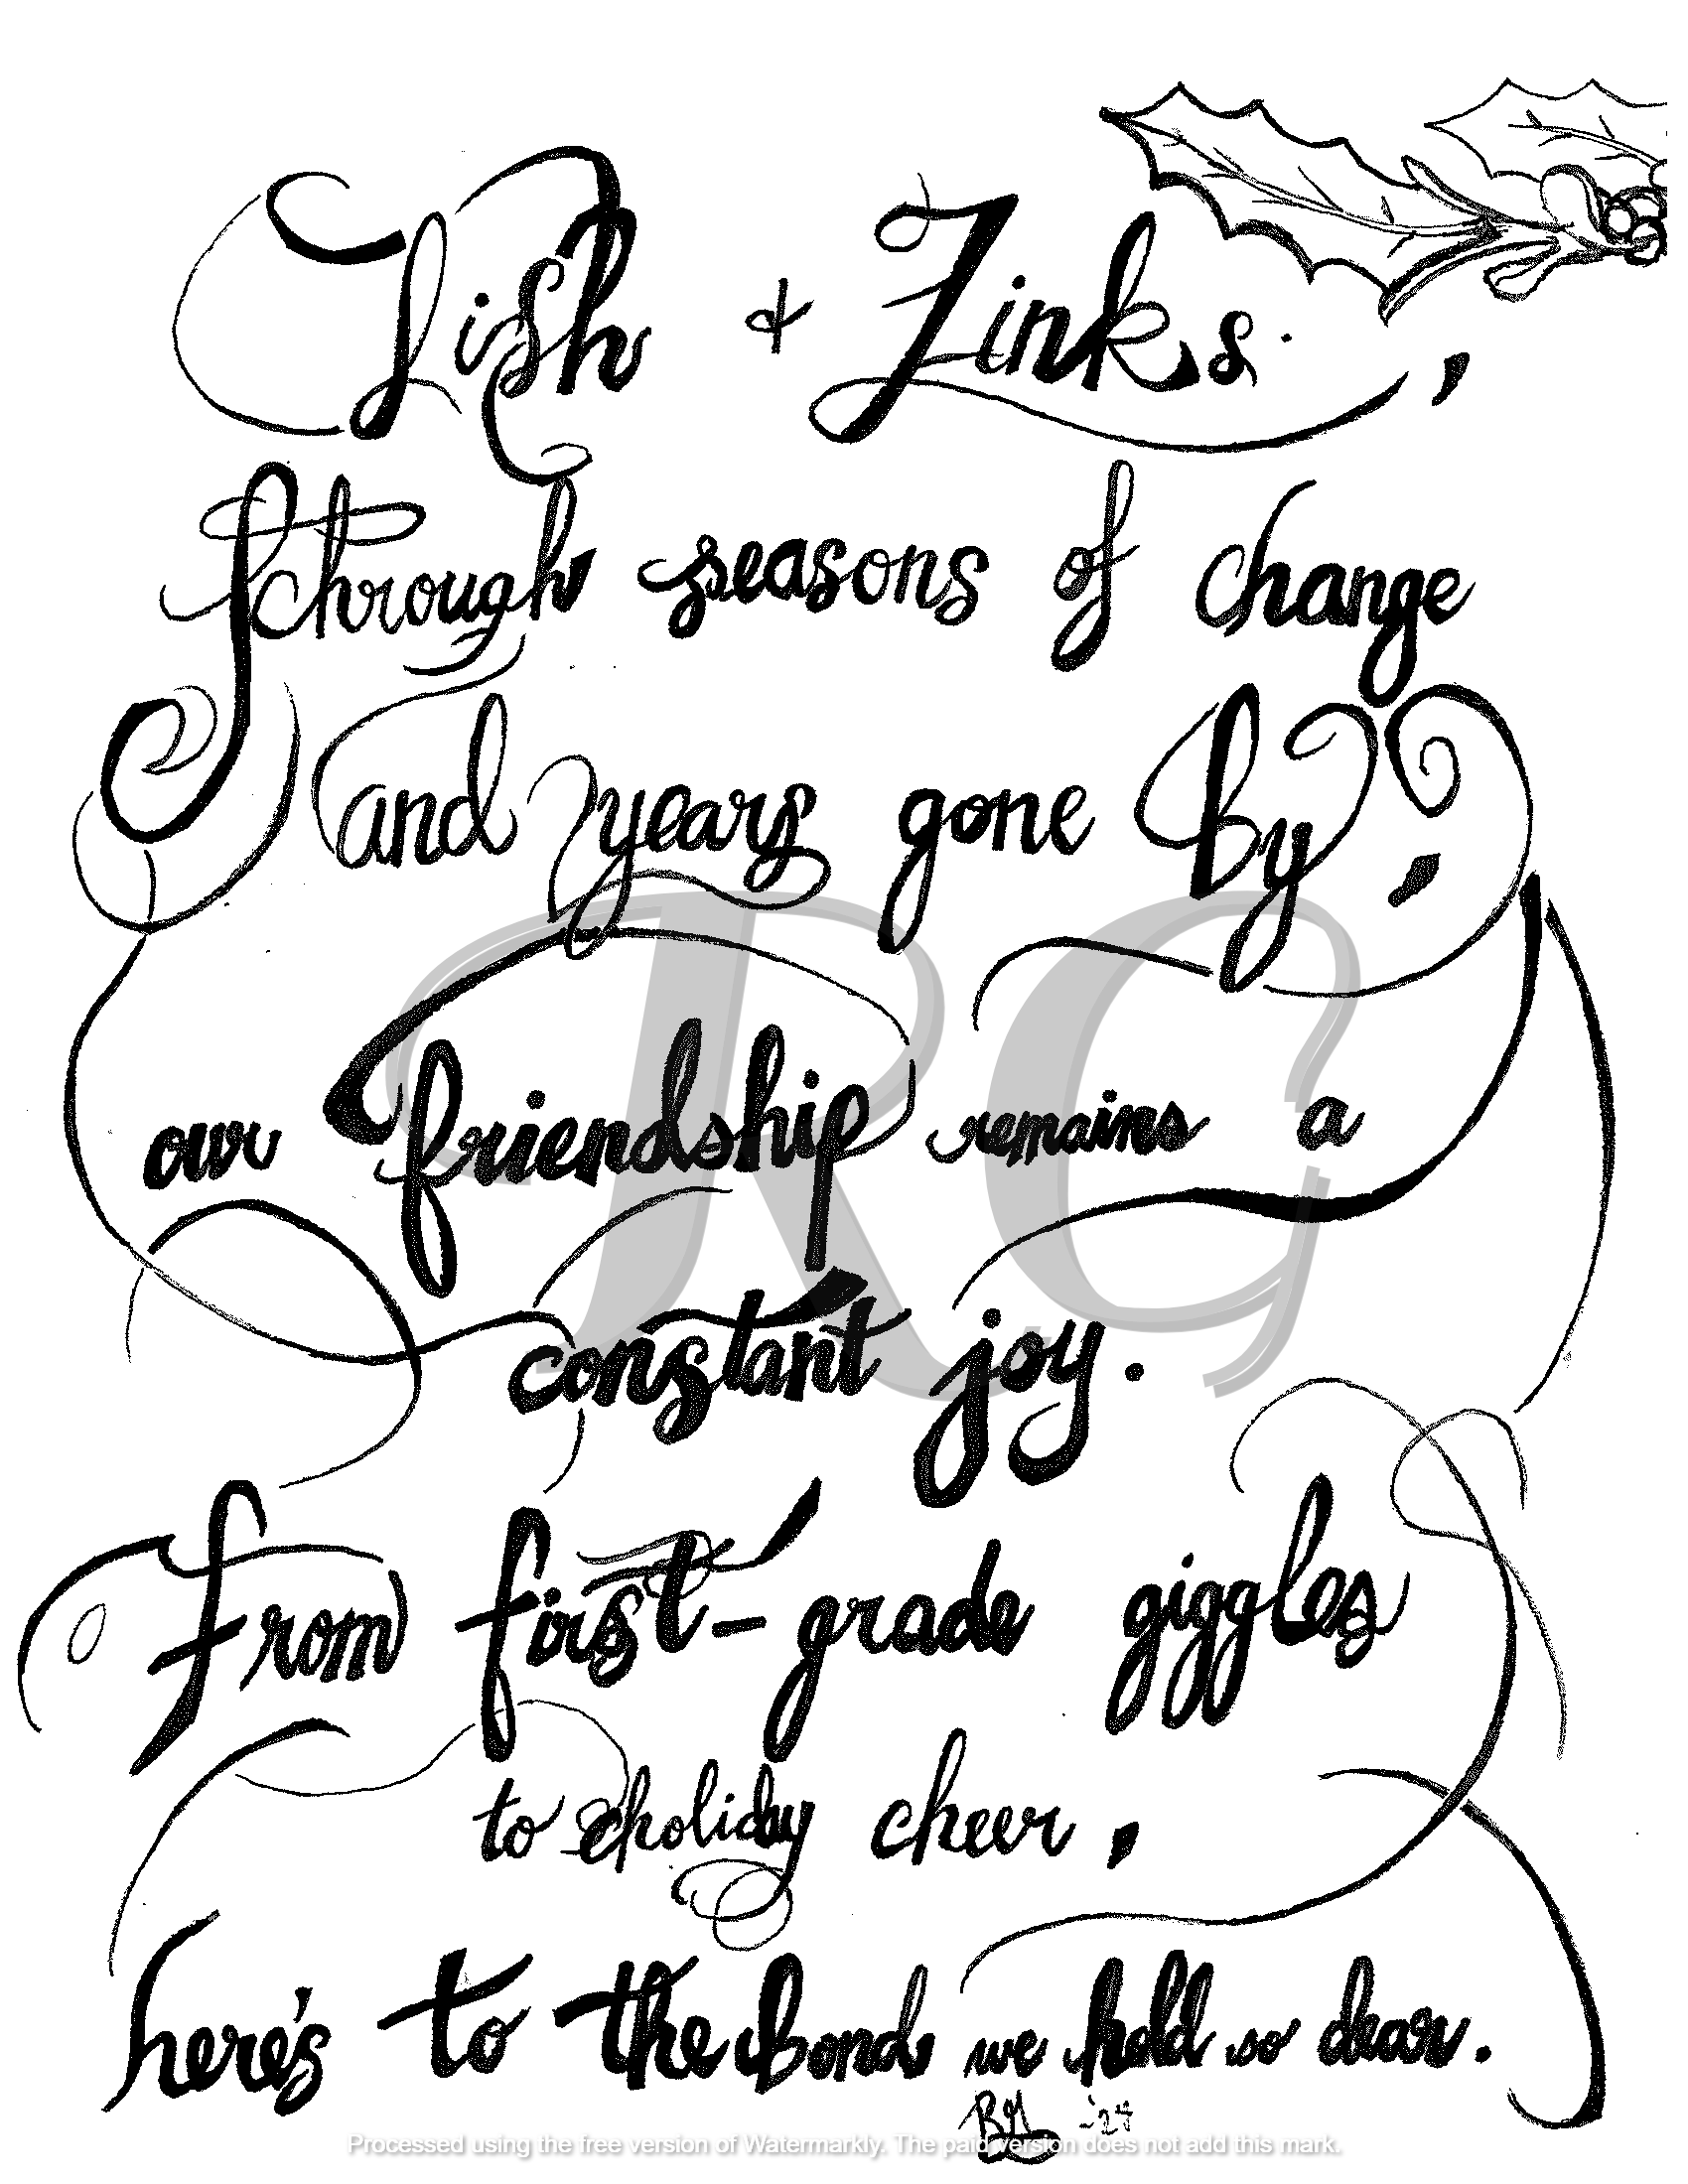 Tish & Zinks.,
through seasons of change
and years gone by,
our friendship remains a
constant joy.
From first-grade giggles
to holiday cheer,
here's to the Bond we hold so dear.
RG
Processed using the free version of Watermarkly. The paid version does not add this mark.